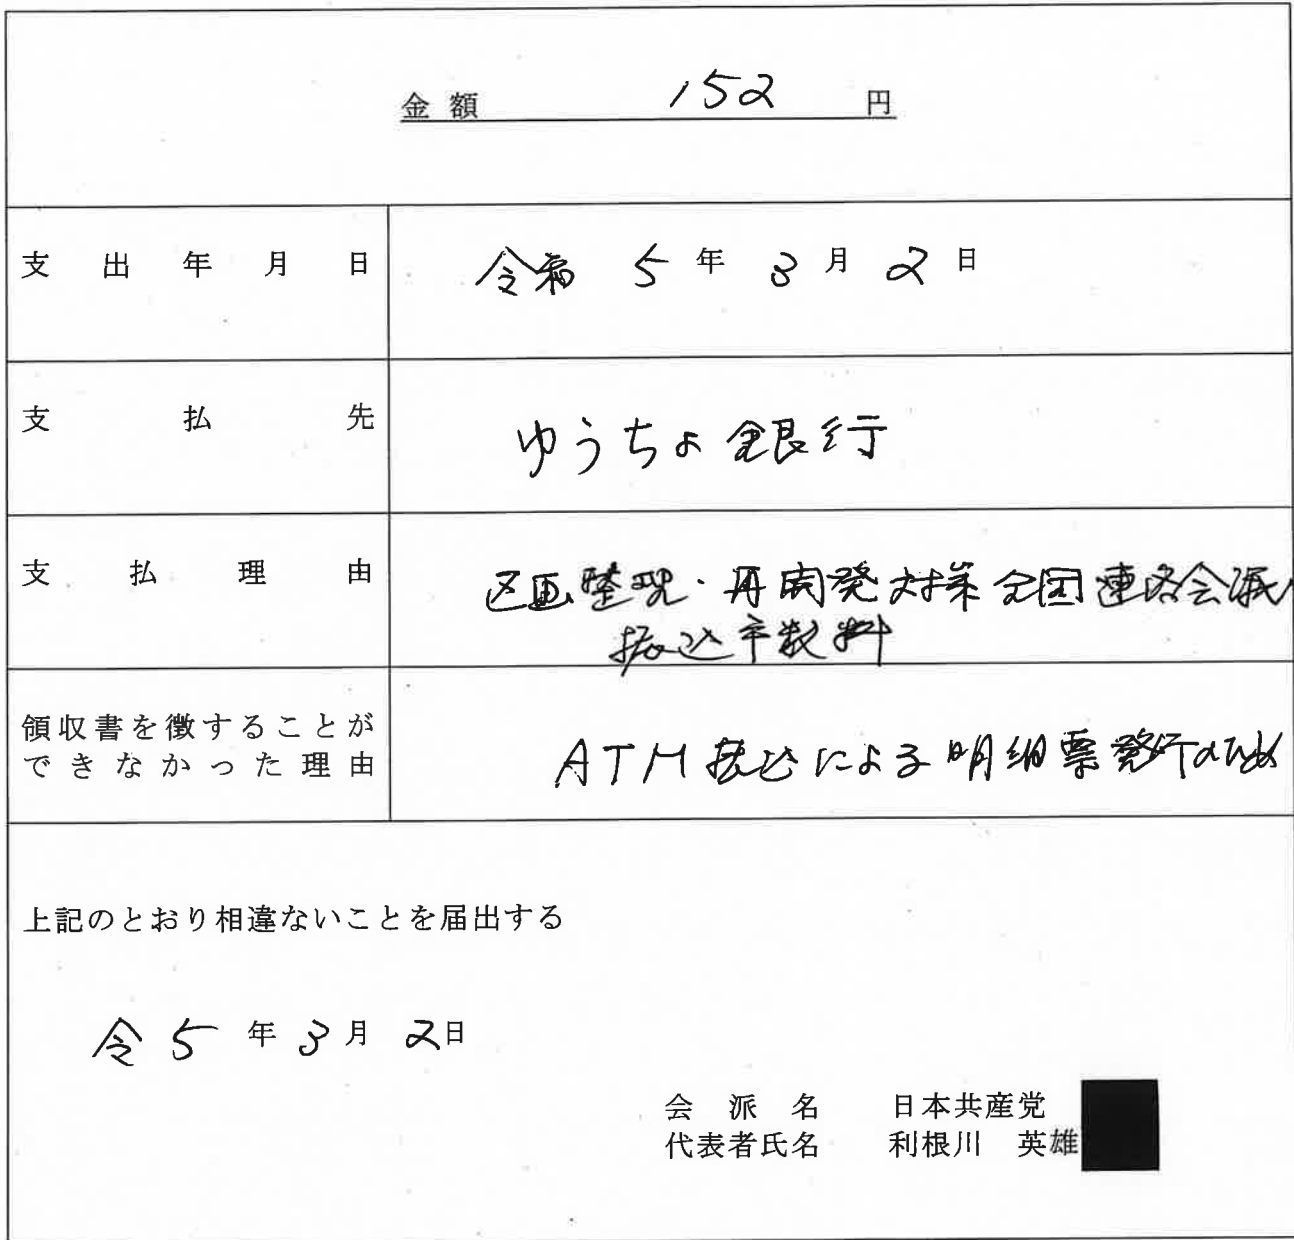 金額 152 円
支出年月日 令和 5 年 3 月 2 日
支払先 ゆうちょ銀行
支払理由 区画整理・再開発対策全国連絡会議
振込手数料
領収書を徴することが
できなかった理由 ATM振込による明細票発行のため
上記のとおり相違ないことを届出する
令 5 年 3 月 2日
会派名 日本共産党
代表者氏名 利根川 英雄